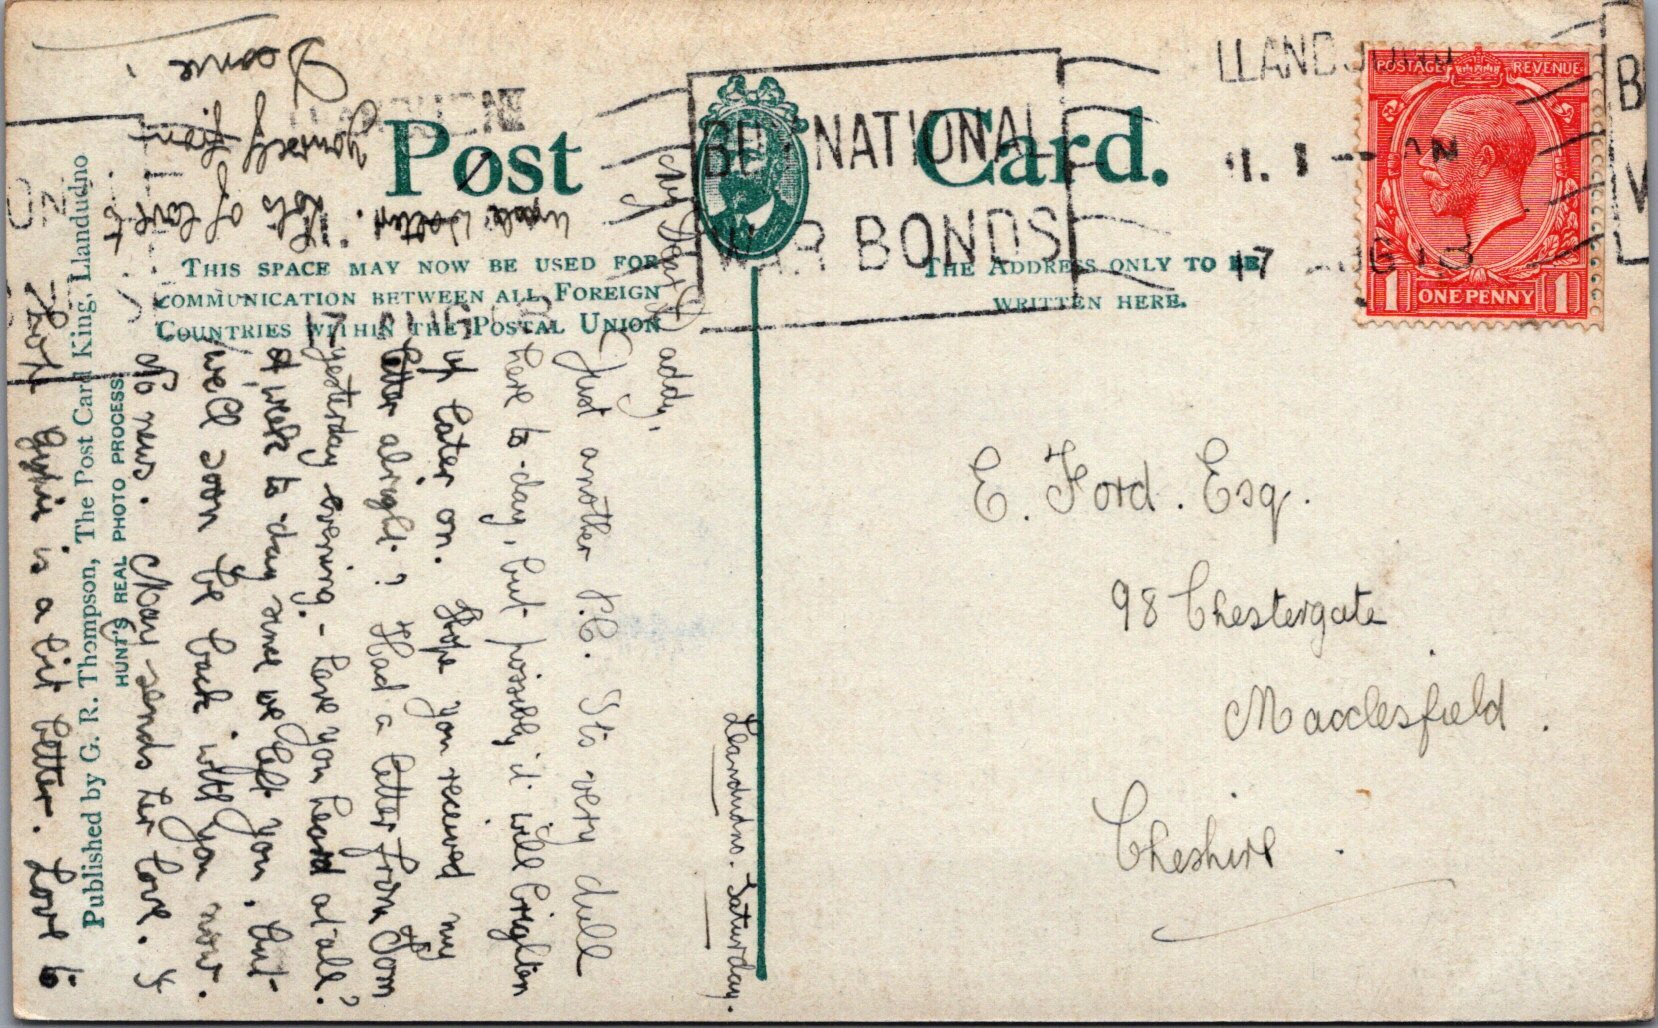 Post Card.
THIS SPACE MAY NOW BE USED FOR
COMMUNICATION BETWEEN ALL FOREIGN
COUNTRIES WITHIN THE POSTAL UNION
THE ADDRESS ONLY TO BE
WRITTEN HERE.
NATIONAL
WAR BONDS
LLANDUDNO
17 AUG 18
POSTAGE REVENUE
1 ONE PENNY 1
E. Ford. Esq.
98 Chestergate
Macclesfield.
Cheshire.
Llandudno. Saturday.
My Dear Daddy,
Just another P.C. Its very dull
here to-day, but possibly it will brighten
up later on. Hope you received my
letter alright? Had a letter from Tom
yesterday evening. - Have you heard at all?
A week to-day since we left you, but
we'll soon be back with you now.
No news. Mary sends her love.
is a bit better. Love to
Uncle Walter.
Lots of love to
yourself from
Published by G. R. Thompson, The Post Card King, Llandudno
HUNT'S REAL PHOTO PROCESS